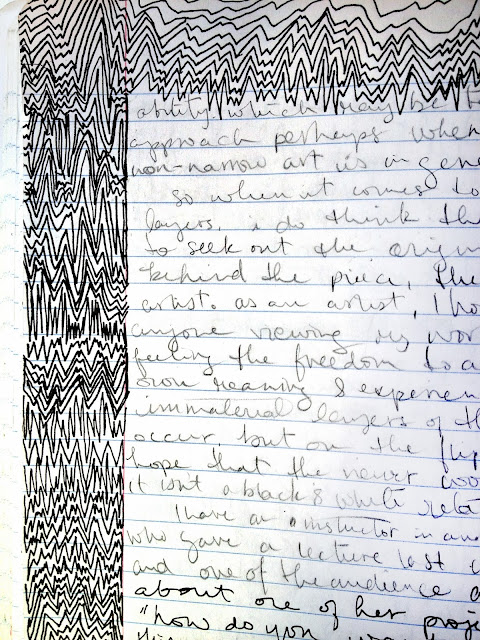 ability, which may be t
approach perhaps when
non-narrow art is in gene
so when it comes to
layers, i do think the
to seek out the origin
behind the piece, the
artist. as an artist, I ho
anyone viewing my wor
feeling the freedom to a
own meaning & experien
immaterial layers of th
occur, but on the flip
hope that the viewer woo
it isnt a black & white rela
I have an instructor in an
who gave a lecture last
and one of the audience a
about one of her projec
"how do you